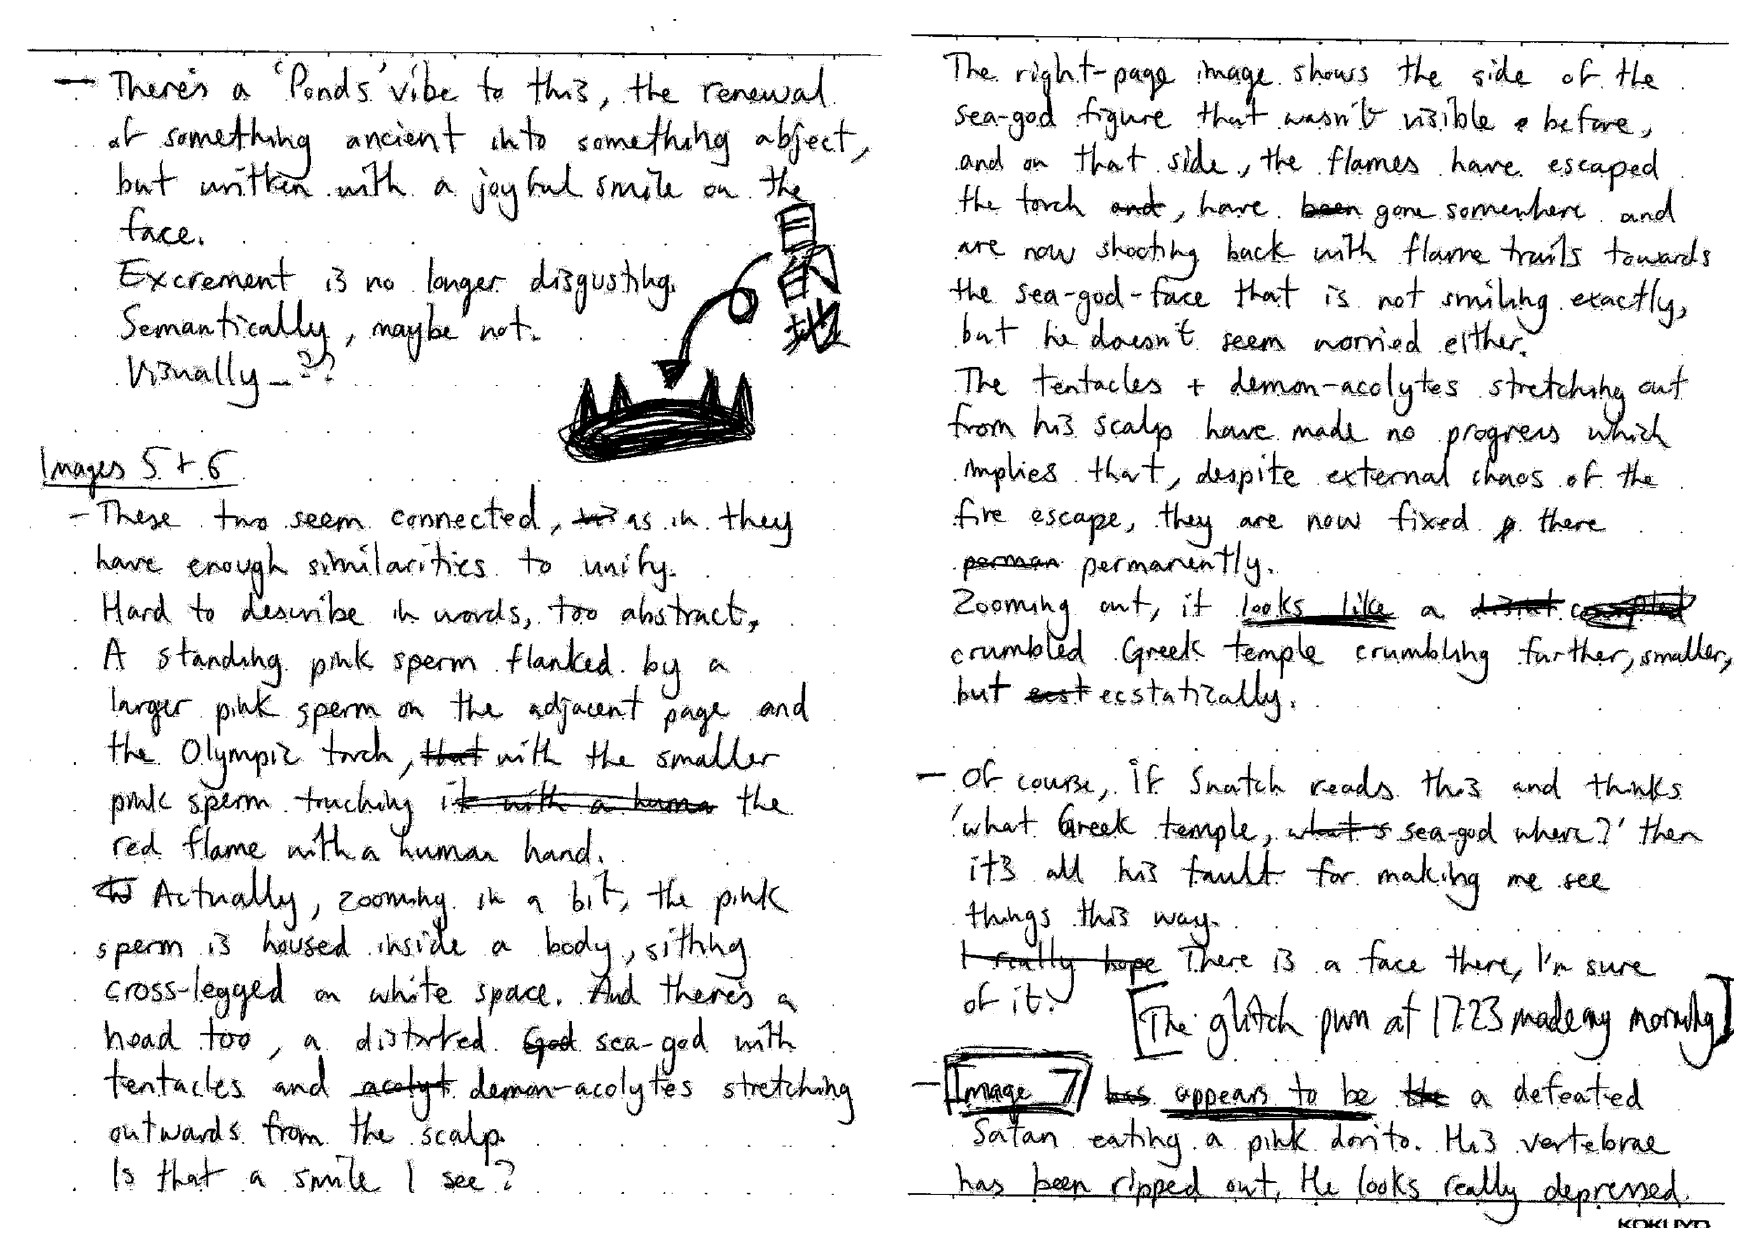 — There's a 'Ponds' vibe to this, the renewal
of something ancient into something abject,
but written with a joyful smile on the
face.
Excrement is no longer disgusting.
Semantically, maybe not.
Visually - ??
目的地
Images 5 + 6
- These two seem connected, as in they
have enough similarities to unify.
Hard to describe in words, too abstract,
A standing pink sperm flanked by a
larger pink sperm on the adjacent page and
the Olympic torch, that with the smaller
pink sperm touching it with a huma the
red flame with a human hand.
Actually, zooming in a bit, the pink
sperm is housed inside a body, sitting
cross-legged on white space. And there's a
head too, a distorted God sea-god with
tentacles and acolyt demon-acolytes stretching
outwards from the scalp.
Is that a smile I see?
The right-page image shows the side of the
sea-god figure that wasn't visible before,
and on that side, the flames have escaped
the torch and, have been gone somewhere and
are now shooting back with flame trails towards
the sea-god-face that is not smiling exactly,
but he doesn't seem worried either.
The tentacles + demon-acolytes stretching out
from his scalp have made no progress which
implies that, despite external chaos of the
fire escape, they are now fixed p there
perman permanently.
Zooming out, it looks like a
crumbled Greek temple crumbling further, smaller,
but ecst ecstatically.
— Of course, if Snatch reads this and thinks
'what Greek temple, what s sea-god where?' then
it's all his fault for making me see
things this way.
I really hope There is a face there, I'm sure
of it.
[The glitch pwn at 17:23 made my morning]
— Image 7 has appears to be the a defeated
Satan eating a pink dorito. His vertebrae
has been ripped out. He looks really depressed.
KOKUYO